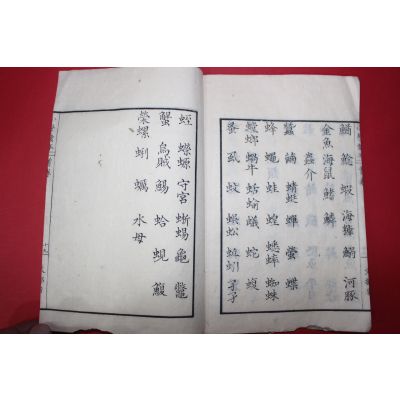 鰕 海獐 鰨 河豚
金魚 海鼠 鰭 鱗
蟲介
蠶 蜻蜓 蟬 螢 蝶
蜂 蠅 蛙 蝗 蟋蟀 蜘蛛
蟷螂 蝸牛 蛞蝓 蟻 蛇 蝮
蚤 虱 蚊 蜈蚣 蚯蚓 孑孑
蛭 蠑螈 守宮 蜥蜴 龜 鼈
蟹 烏賊 蛤 蜆 鰒
榮螺 蜊 蠣 水母